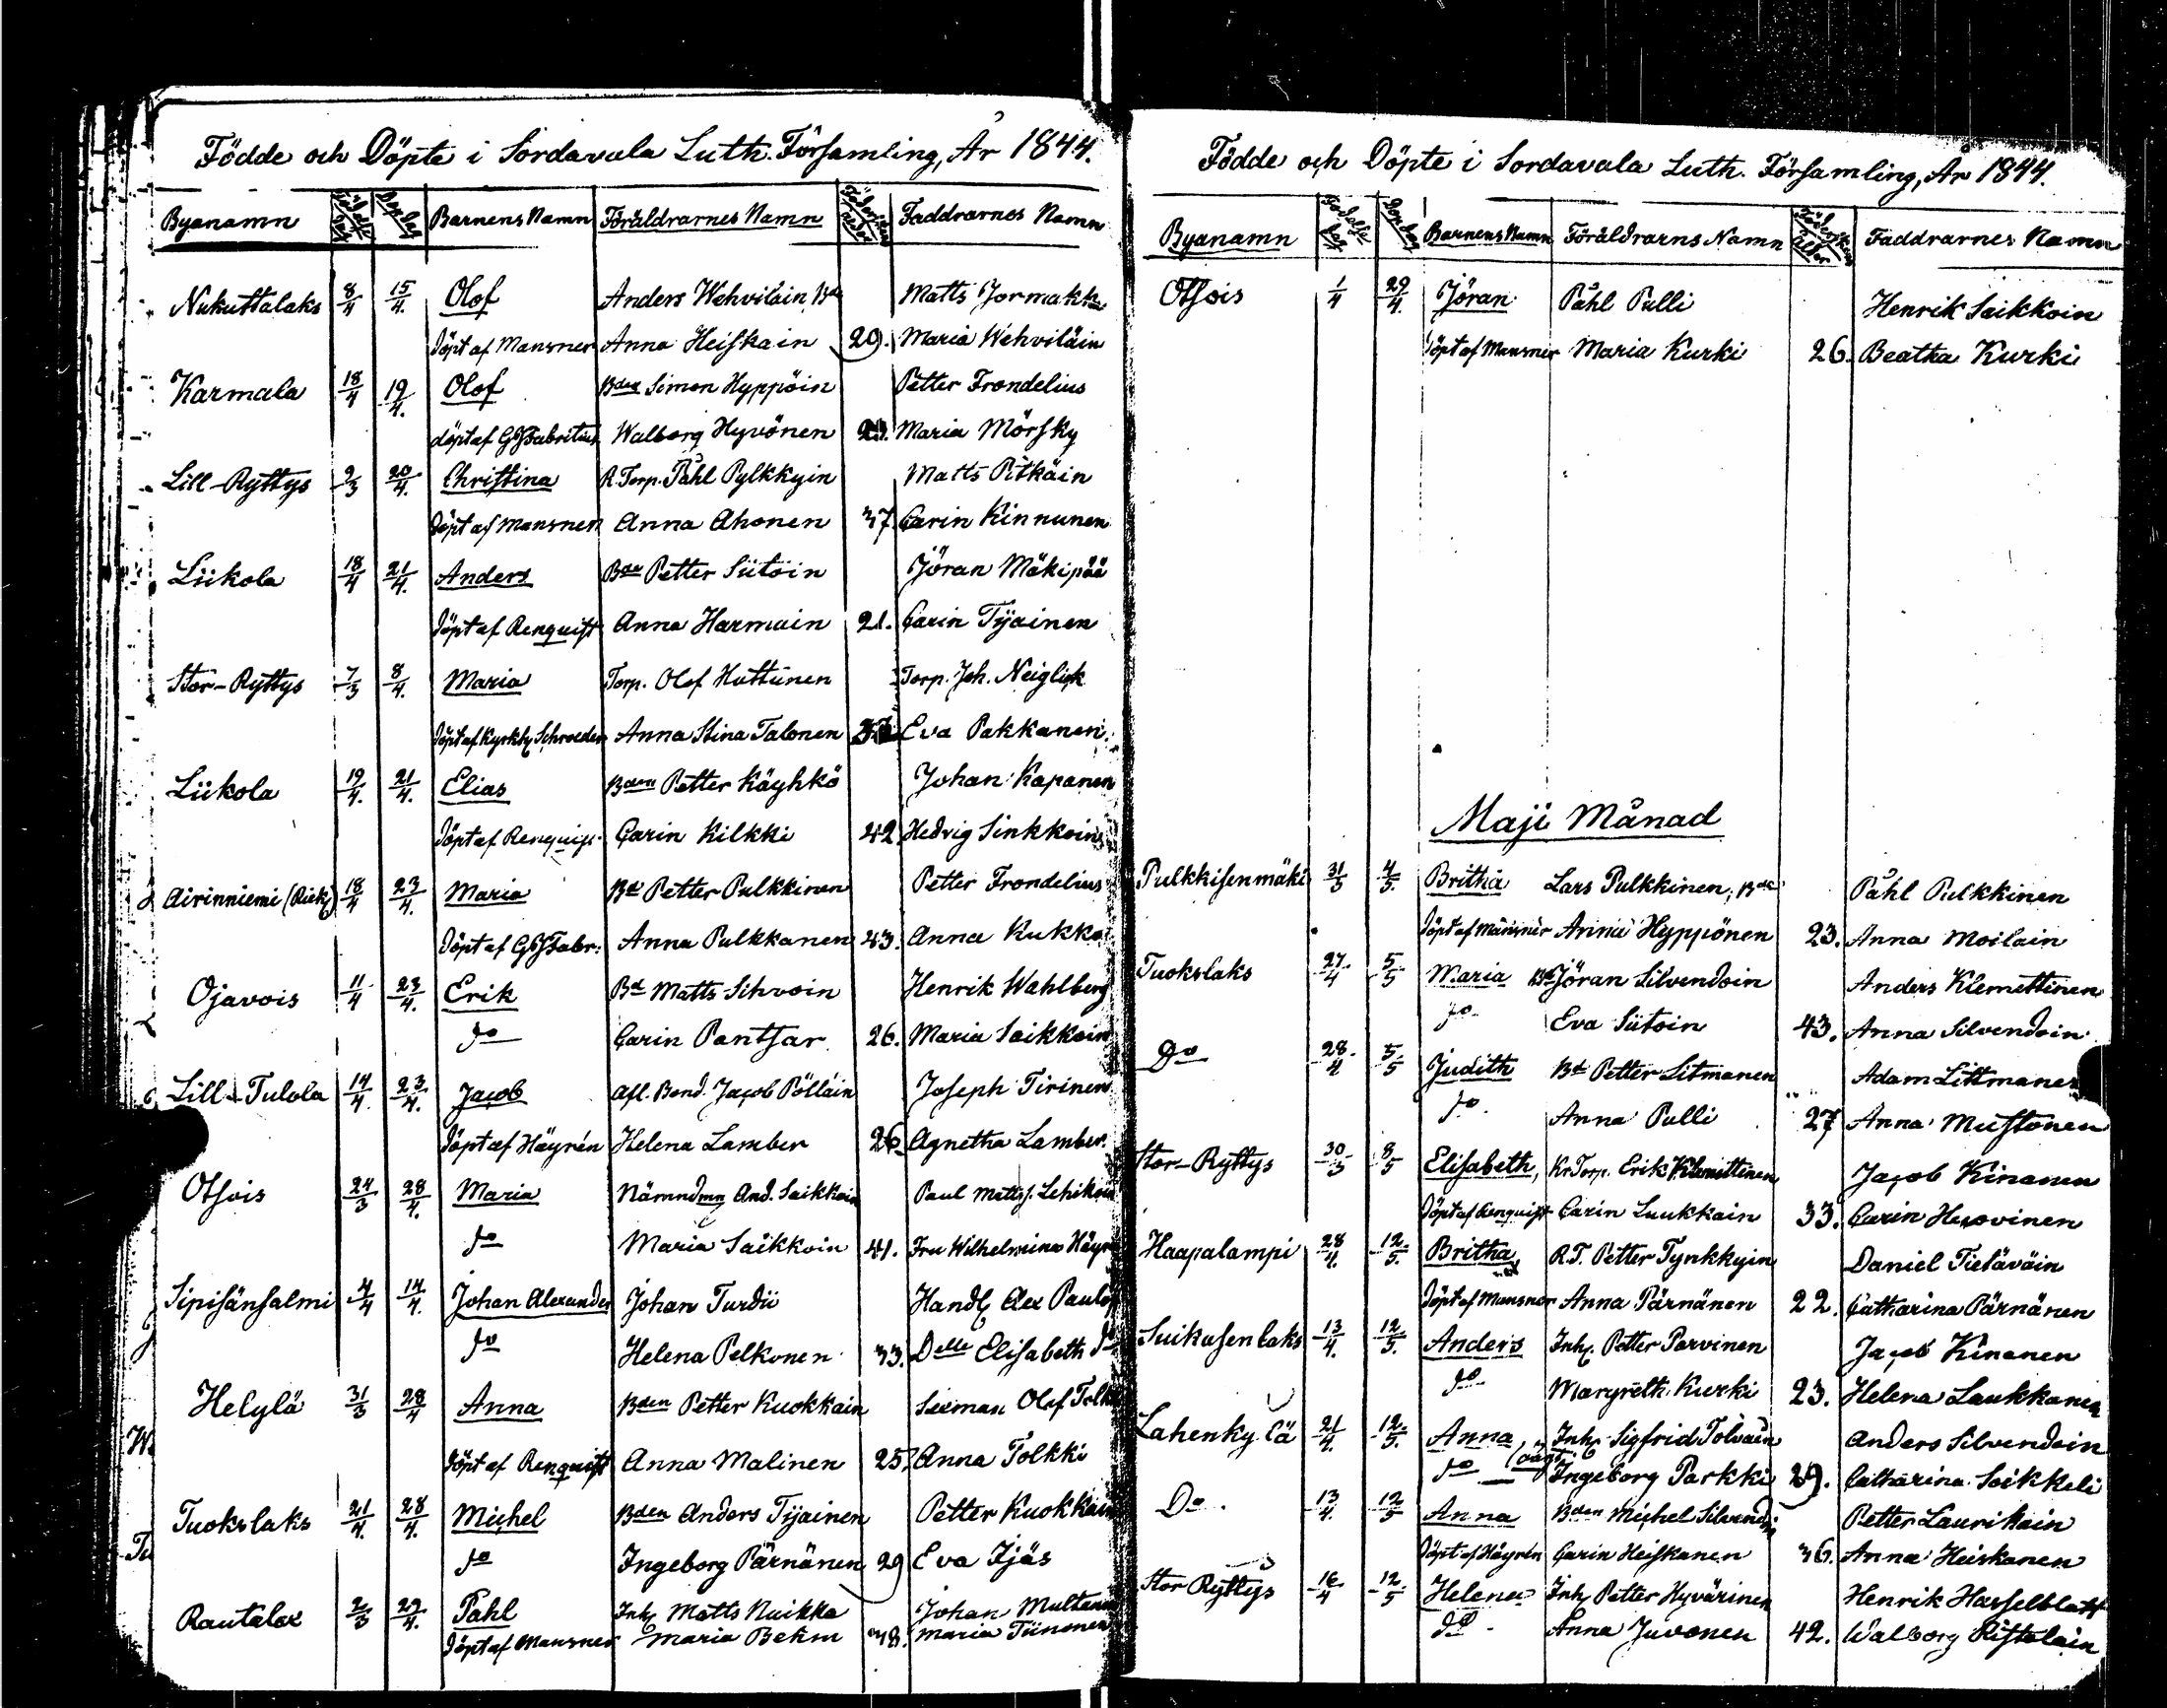 Födde och Döpte i Sordavala Luth. Församling, År 1844.
Byanamn Födelse dag Dop dag Barnens Namn Föräldrarnes Namn Föderskans ålder Faddrarnes Namn
Nukuttalaks 8/4 15/4. Olof Anders Wehviläin, Bd Matts Jormakka
döpt af Mansner Anna Heiskain 29. Maria Wehviläin
Karmala 18/4 19/4. Olof Bden Simon Hyppöin Petter Frondelius
döpt af G Fabritius Walborg Hyvönen Maria Mörsky
Lill-Ryttys 2/3 20/4. Christina R. Torp. Påhl Pylkkyin Matts Pitkäin
döpt af Mansner Anna Ahonen 37. Carin Kinnunen
Liikola 18/4 21/4. Anders Bden Petter Siitoin Jöran Mäkipää
döpt af Renquist Anna Harmain 21. Carin Tyainen
Stor-Ryttys 7/3 8/4. Maria Torp. Olof Huttunen Torp. Joh. Neiglick
döpt af Kyrkh Schroeder Anna Stina Talonen Eva Pakkanen.
Liikola 19/4. 21/4. Elias Bden Petter Käyhkö Johan Kapanen
döpt af Renquist Carin Kilkki 42 Hedvig Sinkkoin
Airinniemi (Riek) 18/4 23/4. Maria Bd Petter Pulkkinen Petter Frondelius
döpt af G Fabr: Anna Pulkkanen 43. Anna Kukko
Ojavois 11/4 23/4. Erik Bd Matts Sihvoin Henrik Wahlberg
do Carin Pantsar 26. Maria Saikkoin
Lill-Tulola 14/4. 23/4. Jacob Afl. Bond. Jacob Pölläin Joseph Tirinen
döpt af Häyrén Helena Lamber 26. Agnetha Lamber.
Otsois 24/3 28/4. Maria Nämndmn And. Saikkoin Paul Mattss. Lehikoin
do Maria Saikkoin 41. Fru Wilhelmina Häyr
Sipisänsalmi 4/4 14/4. Johan Alexander Johan Turdii Handl Alex Paulof
do Helena Pelkonen 33. Delle Elisabeth do
Helylä 31/3 28/4 Anna Bden Petter Kuokkain Seeman Olof Tolk
döpt af Renquist Anna Malinen 25. Anna Tolkki
Tuokslaks 21/4. 28/4. Michel Bden Anders Tyainen Petter Kuokkain
do Ingeborg Pärnänen 29 Eva Ijäs
Rautalax 2/3 29/4. Påhl Inh Matts Nuikka Johan Multanen
döpt af Mansner Maria Behm 48. Maria Tiinonen
Födde och Döpte i Sordavala Luth. Församling, År 1844.
Byanamn Födelse dag Dop dag Barnens Namn Föräldrarns Namn Föderskans ålder Faddrarnes Namn
Otsois 1/4 29/4. Jöran Påhl Pulli Henrik Saikkoin
döpt af Mansner Maria Kurki 26. Beatha Kurki
Maji Månad
Pulkkisenmäki 31/3 4/5. Britha Lars Pulkkinen, Bde Påhl Pulkkinen
döpt af Mansner Anna Hyppönen 23. Anna Moilain
Tuokslaks 27/4 5/5 Maria Bd Jöran Silvendoin Anders Klemettinen
do Eva Siitoin 43. Anna Silvendoin
Do 28/4 5/5 Judith Bd Petter Litmanen Adam Littmanen
do Anna Pulli 27 Anna Mustonen
Stor-Ryttys 30/3 8/5 Elisabeth, Kr. Torp. Erik Klemettinen Jacob Kinanen
döpt af Renquist Carin Luukkain 33. Carin Hesovinen
Haapalampi 28/4. 12/5. Britha R.T. Petter Tynkkyin Daniel Tietäväin
döpt af Mansner Anna Pärnänen 22. Catharina Pärnänen
Suikasenlaks 13/4. 12/5. Anders Inh. Petter Parvinen Jacob Kinanen
do Margreth Kurki 23. Helena Laukkanen
Lahenkylä 21/4. 12/5. Anna Inh Sigfrid Tolvain Anders Silvendoin
do Ingeborg Parkki 29. Catharina Saikkeli
Do. 13/4. 12/5 Anna Bden Michel Silvendoin Petter Laurikain
döpt af Häyrén Carin Heiskanen 36. Anna Heiskanen
Stor Ryttys 16/4 12/5 Helena Inh Petter Hyvärinen Henrik Hasselblatt
do Anna Juvonen 42. Walborg Ristolain